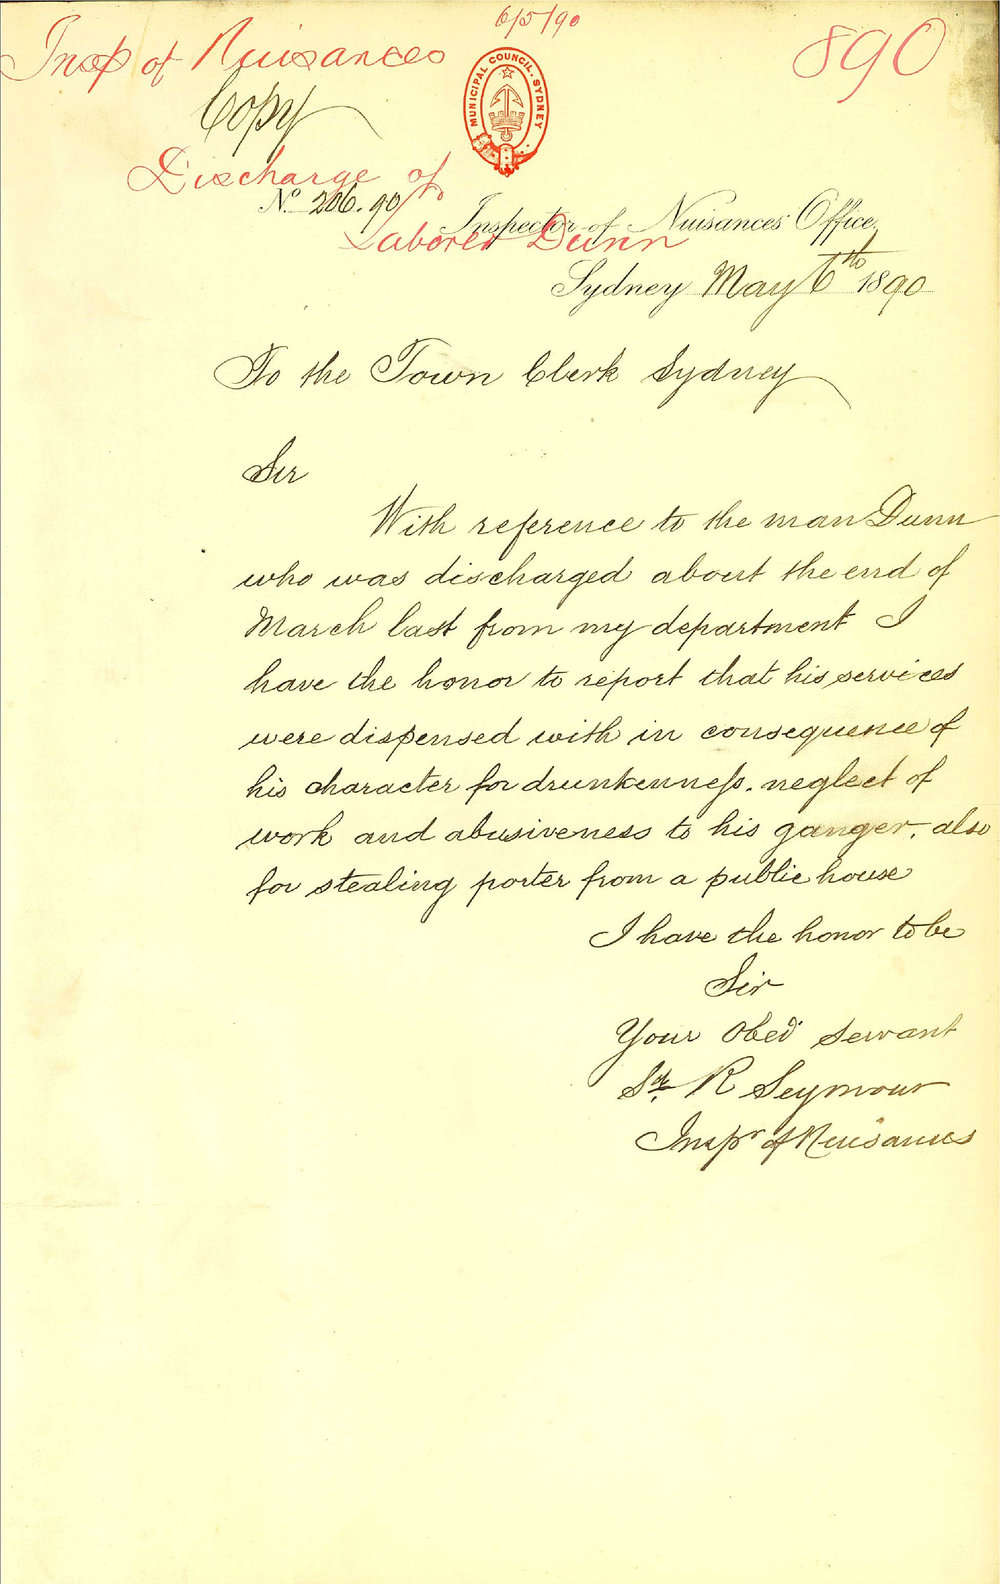 6/5/90
Insp of Nuisances
890
Copy
MUNICIPAL COUNCIL. SYDNEY
Discharge of
No. 206.90
Laborer Dunn
Inspector of Nuisances' Office,
Sydney May 6th 1890
To the Town Clerk Sydney
Sir
With reference to the man Dunn
who was discharged about the end of
March last from my department I
have the honor to report that his services
were dispensed with in consequence of
his character for drunkenness. neglect of
work and abusiveness to his ganger, also
for stealing porter from a public house
I have the honor to be
Sir
Your Obed servant
Sd. R Seymour
Inspr of Nuisances